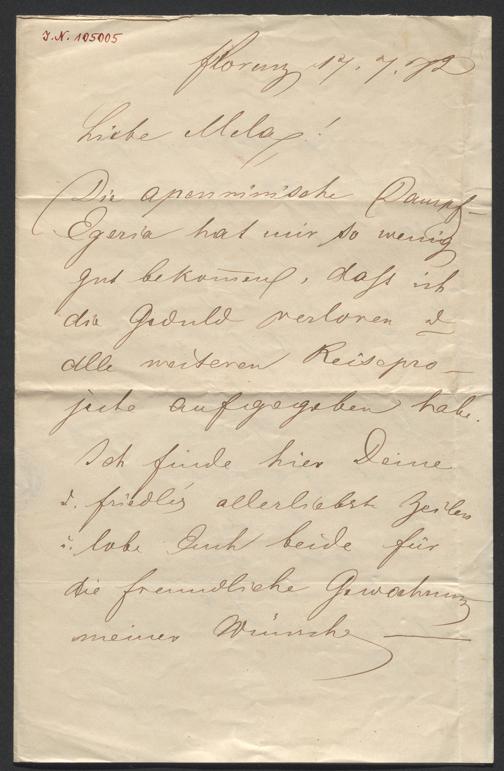 J.N. 105005
Florenz 17. 7. 72
Liebe Mela!
Die apenninische Dampf-
Egeria hat mir so wenig
gut bekom̅en, daß ich
die Geduld verloren u
alle weiteren Reisepro-
jecte aufgegeben habe.
Ich finde hier Deine
u. friedls allerliebste Zeilen
u. lobe Euch beide für
die freundliche
meiner Wünsche —